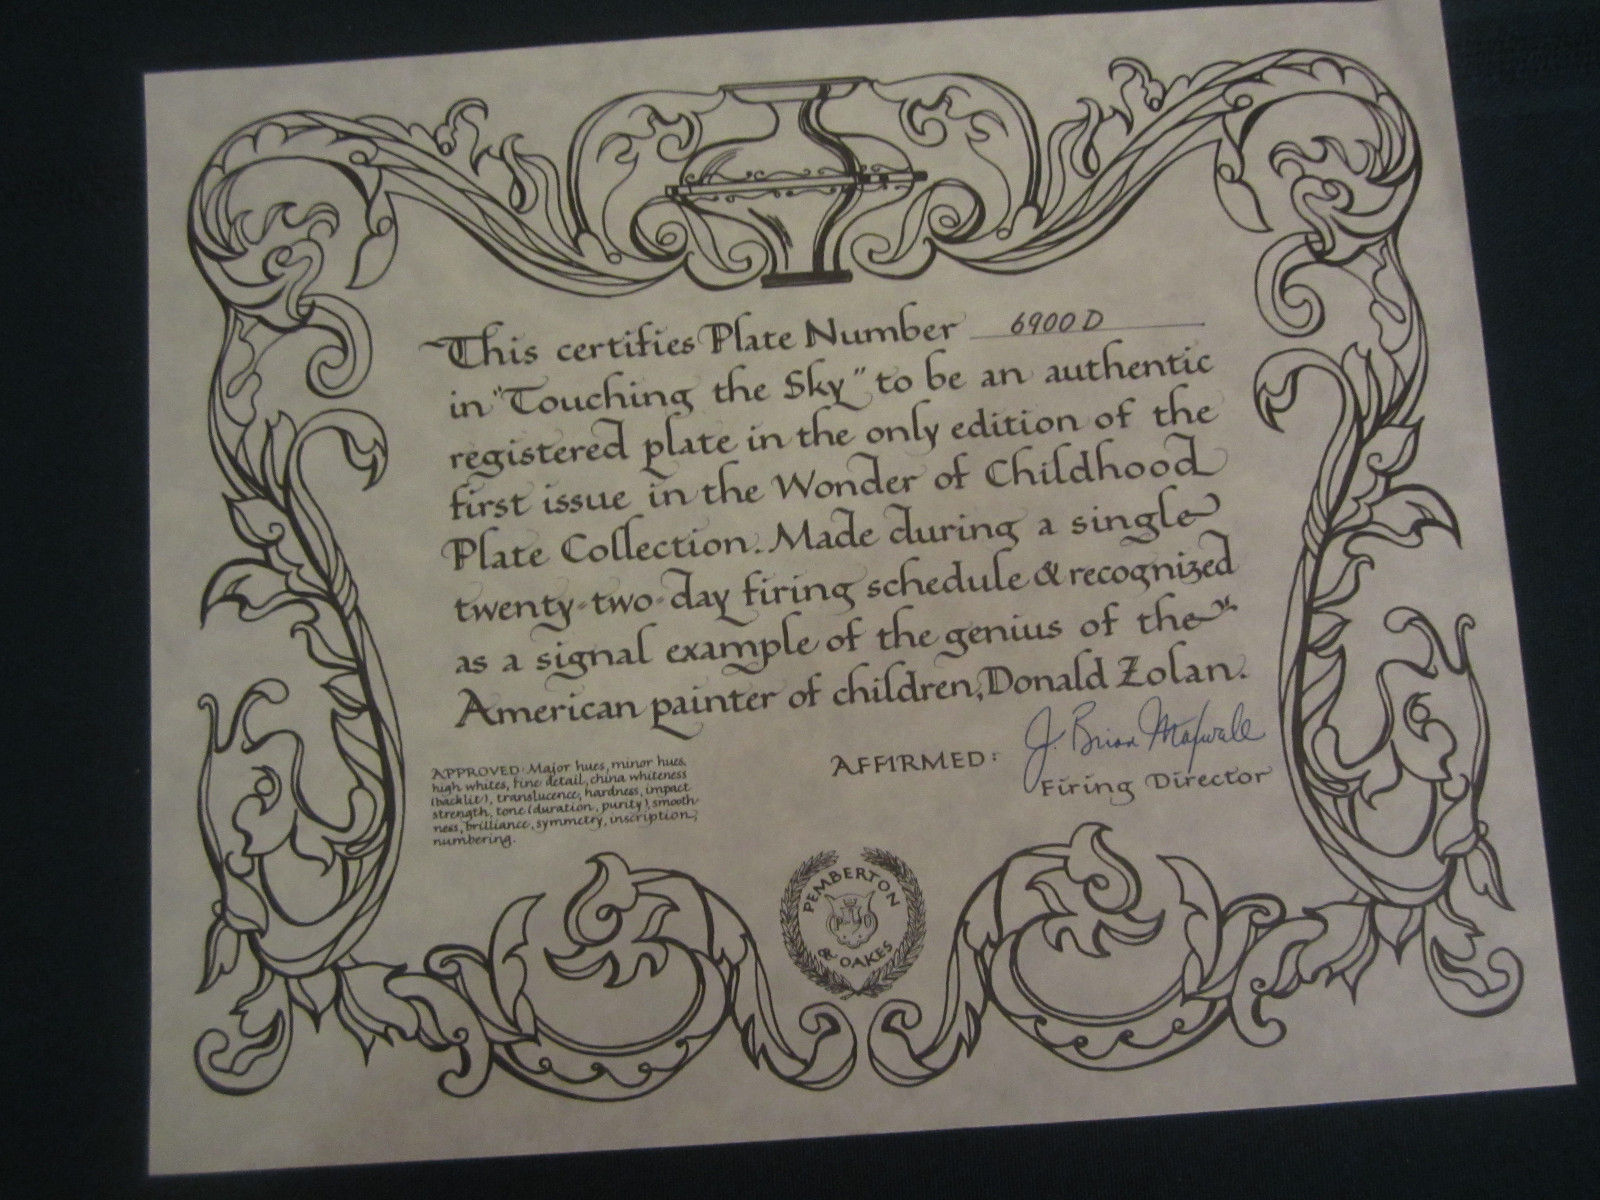 This certifies Plate Number 6900 D
in "Touching the Sky" to be an authentic
registered plate in the only edition of the
first issue in the Wonder of Childhood
Plate Collection. Made during a single
twenty-two-day firing schedule & recognized
as a signal example of the genius of the
American painter of children, Donald Zolan.
APPROVED: Major hues, minor hues,
high whites, fine detail, china whiteness
(backlit), translucence, hardness, impact
strength, tone (duration, purity), smooth-
ness, brilliance, symmetry, inscription,
numbering.
AFFIRMED: J. Brian
Firing Director
PEMBERTON
P O
& OAKES